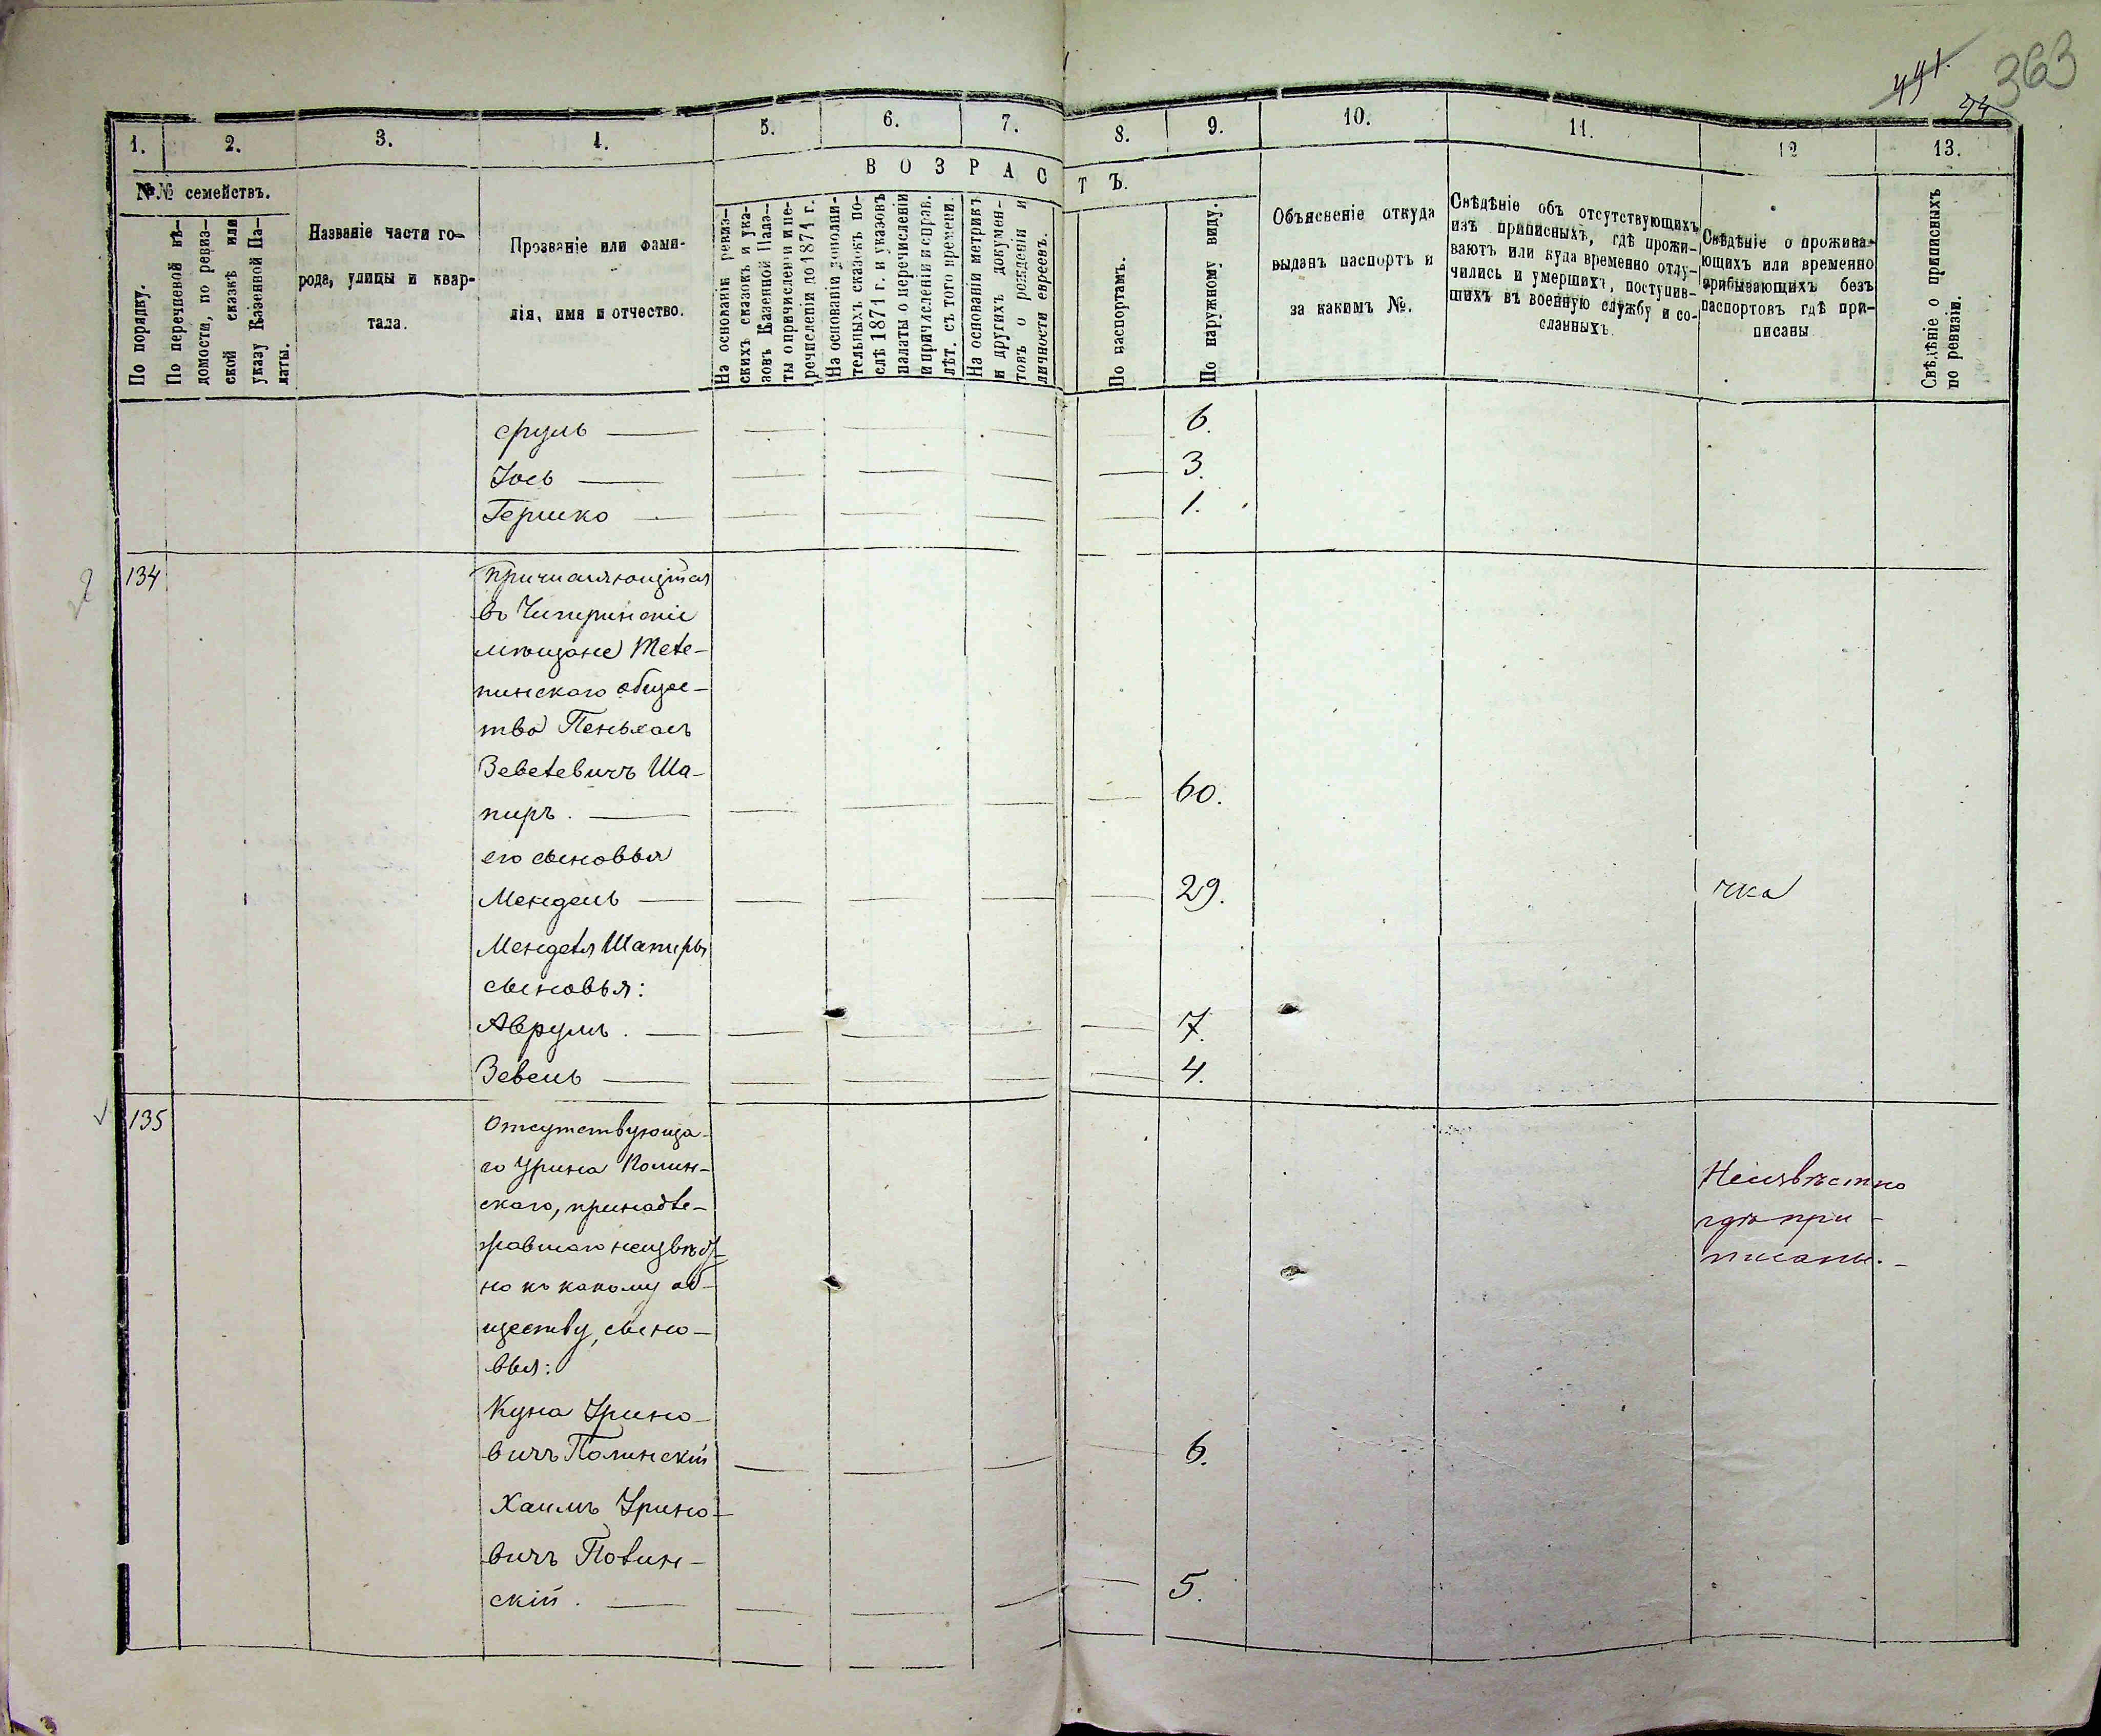 491.
44
363
1.
2.
3.
4.
5.
6.
7.
8.
9.
10.
11.
12
13.
ВОЗРАСТЪ.
№№ семействъ.
По порядку.
По перечневой вѣ-
домости, по ревиз-
ской сказкѣ или
указу Казенной Па-
латы.
Названіе части го-
рода, улицы и квар-
тала.
Прозваніе или фами-
лія, имя и отчество.
На основаніи ревиз-
скихъ сказокъ и ука-
зовъ Казенной Пала-
ты о причисленіи и пе-
речисленіи до 1871 г.
На основаніи дополни-
тельныхъ сказокъ по-
слѣ 1871 г. и указовъ
палаты о перечисленіи
и причисленіи и справ.
лѣт. съ того времени.
На основаніи метрикъ
и другихъ докумен-
товъ о рожденіи и
личности евреевъ.
По паспортамъ.
По наружному виду.
Объясненіе откуда
выданъ паспортъ и
за какимъ №.
Свѣдѣніе объ отсутствующихъ
изъ приписныхъ, гдѣ прожи-
ваютъ или куда временно отлу-
чились и умершихъ, поступив-
шихъ въ военную службу и со-
сланныхъ.
Свѣдѣніе о прожива-
ющихъ или временно
прибывающихъ безъ
паспортовъ гдѣ при-
писаны
Свѣдѣніе о приписныхъ
по ревизіи.
Сруль — 6.
Іось — 3.
Гершко — 1.
134
Причисляющійся
въ Чигиринскіе
мѣщане Теле-
пинскаго общес-
тва Пеньхасъ
Зевелевичъ Ша-
пиръ. — 60.
его сыновья
Мендель — 29. чка
Менделя Шапиры
сыновья:
Аврумъ. — 7.
Зевель — 4.
135
Отсутствующа-
го Урина Полин-
скаго, принадле-
жавшаго неизвѣст-
но къ какому об-
ществу, сыно-
вья:
Неизвѣстно
гдѣ при-
писаны.-
Куна Урино-
вичъ Полинскій — 6.
Хаимъ Урино-
вичъ Полин-
скій. — 5.